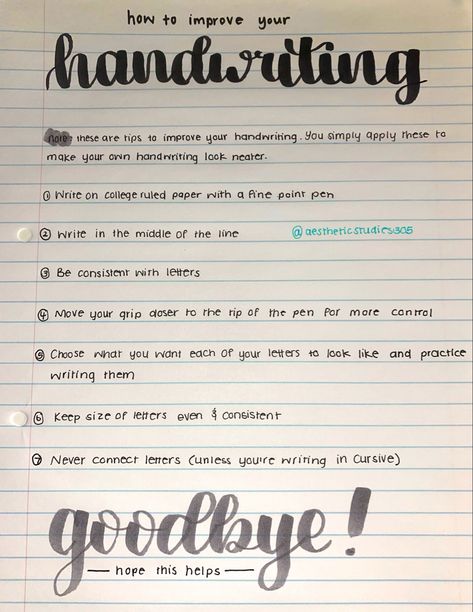 how to improve your
handwriting
note: these are tips to improve your handwriting. You simply apply these to
make your own handwriting look neater.
① Write on college ruled paper with a fine point pen
② Write in the middle of the line @aestheticstudies305
③ Be consistent with letters
④ Move your grip closer to the tip of the pen for more control
⑤ Choose what you want each of your letters to look like and practice
writing them
⑥ Keep size of letters even & consistent
⑦ Never connect letters (unless you're writing in cursive)
goodbye!
— hope this helps —